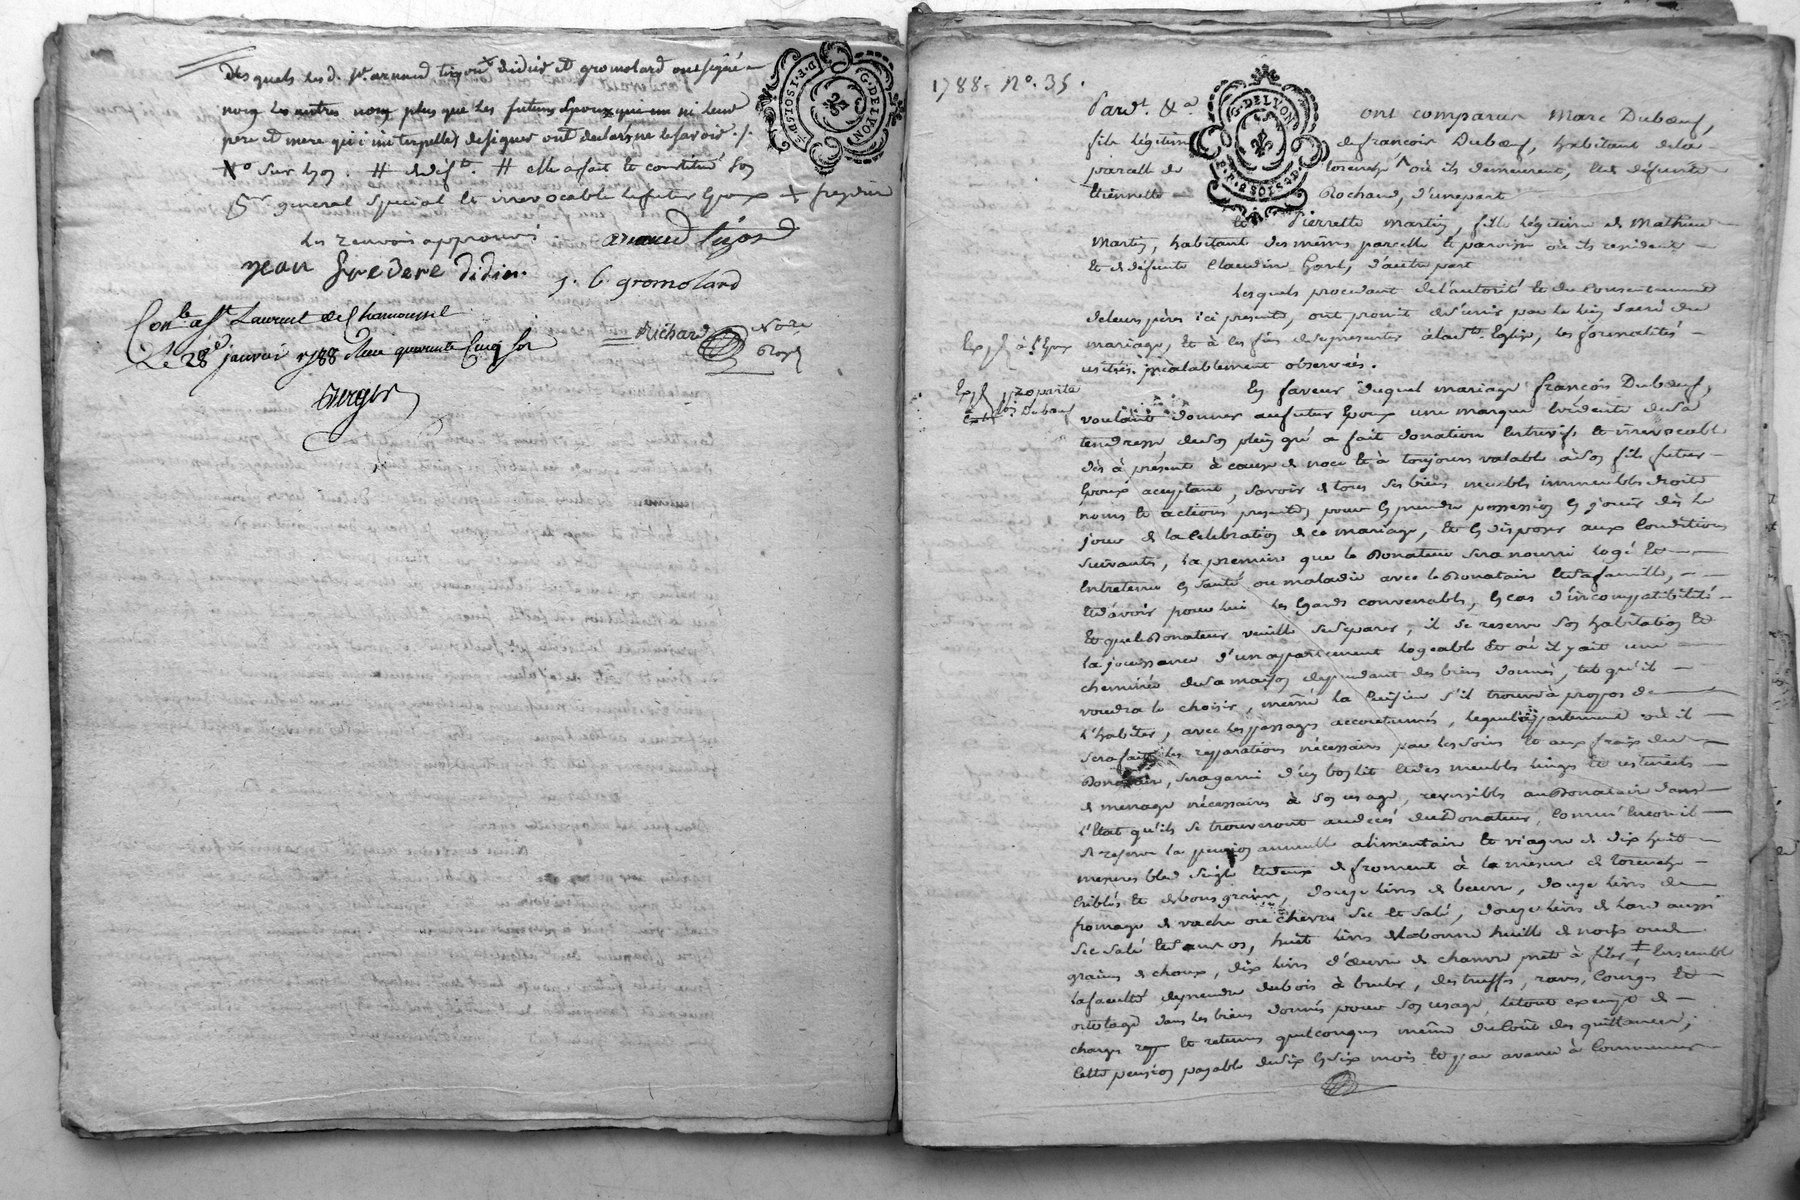 des quels led. Sr. arnaud tixon didier et gromolard ont signé
non les autres non plus que les futurs Epoux qui un ni leur
pere et mere qui interpellés de signer ont declaré ne le savoir ./.
No sur hon. # dud. # elle a fait et constitué son
Pr. general special et irrevocable le futur Epoux + freydier
les renvois approuvés
arnaud
jean didier.
j. b. gromolard
Con.le a St. Laurent de Chamousset
Le 28e. janvier 1788 Reçu quarante Cinq sols
Richard Note
Royal
verger
G. DE LYON
1788. No. 35.
G. DE LYON
Pardt. &a ont comparus Marc Dubœuf,
fils légitime de francois Dubœuf, habitant de la
parcelle de où ils demeurent, et de défunte
Etiennette Rochand, d'une part
et Pierrette Martin, fille légitime de Mathieu
Martin, habitant des mêmes parcelle et paroisse où ils resident
et de défunte Claudine d'autre part
Lesquels procedant de l'autorité et du Consentement
de leurs pères ici présents, ont promit de s'unir par le lien sacré du
Exp à l'Epoux
mariage, et à ces fins de se presenter à la Ste. Eglise, les formalités
usitées préalablement observées.
En faveur duquel mariage francois Dubœuf,
voulant donner au futur Epoux une marque évidente de sa
tendresse de son plein gré a fait donation Entrevifs et irrevocable
dès à présent à cause de noce et à toujours valable à son fils futur
Epoux acceptant, savoir de tous ses biens meubles immeubles droits
noms et actions presents, pour En prendre possession En jouir dès le
jour de la Celebration de ce mariage, et En disposer aux Conditions
suivants, la premiere que le Donateur sera nourri logé et
Entretenu En santé ou maladie avec le Donataire et sa famille,
et d'avoir pour lui les Egards convenables, En cas d'incompatibilité
et que le Donateur veuille se separer, il se reserve son habitation et
la jouissance d'un appartement logeable et où il y ait une
cheminée de sa maison dependant des biens donnés, tel qu'il
voudra le choisir, même la Cuisine s'il trouve à propos de
l'habiter, avec les passages accoutumés, lequel appartement où il
sera fait les reparations nécessaires par les soins et aux fraix du
Donataire, sera garni d'un bois lit et des meubles linges et ustenciles
de menage nécessaires à son usage, reversibles au Donataire dans
l'Etat qu'ils se trouveront au decés du Donateur, Comme Encor il
se reserve la pension annuelle alimentaire et viagere de dix huit
mesures bled seigle et deux de froment à la mesure de
Criblés et de bons grains, douze livres de beurre, douze livres de
fromage de vache ou chevre sec et salé, douze livres de lard aussi
sec salé et sans os, huit livres de la bonne huille de noix ou de
graines de choux, dix livres d'œuvre de chanvre prête à filer, ‡ Ensemble
la faculté de prendre du bois à bruler, des truffes, raves, Courges et
ortolage dans les biens donnés pour son usage, le tout exempt de
charges et retenues quelconques même du Coût des quittances;
Cette pension payable de six En six mois et par avance à Commencer